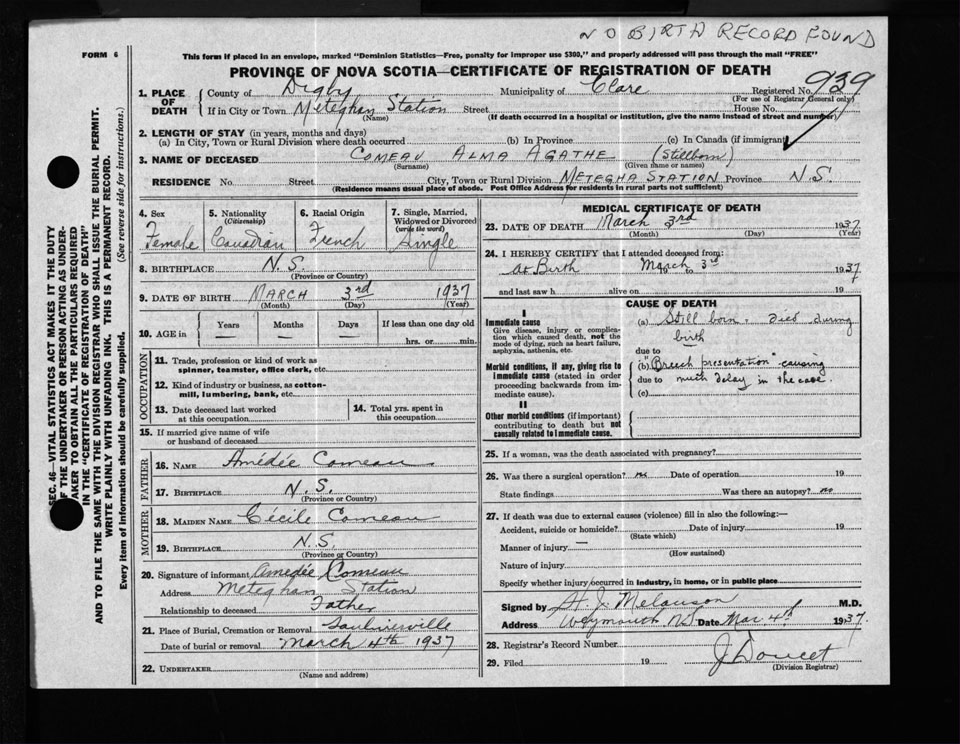 NO BIRTH RECORD FOUND
FORM 6
This form if placed in an envelope, marked "Dominion Statistics—Free, penalty for improper use $300," and properly addressed will pass through the mail "FREE"
PROVINCE OF NOVA SCOTIA—CERTIFICATE OF REGISTRATION OF DEATH
SEC. 46—VITAL STATISTICS ACT MAKES IT THE DUTY
OF THE UNDERTAKER OR PERSON ACTING AS UNDER-
TAKER TO OBTAIN ALL THE PARTICULARS REQUIRED
IN THE "CERTIFICATE OF REGISTRATION OF DEATH"
AND TO FILE THE SAME WITH THE DIVISION REGISTRAR WHO SHALL ISSUE THE BURIAL PERMIT.
WRITE PLAINLY WITH UNFADING INK. THIS IS A PERMANENT RECORD.
Every item of information should be carefully supplied. (See reverse side for instructions.)
1. PLACE OF DEATH County of Digby Municipality of Clare Registered No. 939
(For use of Registrar General only)
If in City or Town Meteghan Station Street House No.
(Name) (If death occurred in a hospital or institution, give the name instead of street and number)
2. LENGTH OF STAY (in years, months and days)
(a) In City, Town or Rural Division where death occurred (b) In Province (c) In Canada (if immigrant)
3. NAME OF DECEASED COMEAU ALMA AGATHE (Stillborn)
(Surname) (Given name or names)
RESIDENCE No. Street City, Town or Rural Division METEGHA STATION Province N.S.
(Residence means usual place of abode. Post Office Address for residents in rural parts not sufficient)
4. Sex 5. Nationality (Citizenship) 6. Racial Origin 7. Single, Married, Widowed or Divorced (write the word)
Female Canadian French Single
8. BIRTHPLACE N.S.
(Province or Country)
9. DATE OF BIRTH MARCH 3rd 1937
(Month) (Day) (Year)
10. AGE in Years Months Days If less than one day old
— — — hrs. or min.
OCCUPATION
11. Trade, profession or kind of work as
spinner, teamster, office clerk, etc.
12. Kind of industry or business, as cotton-
mill, lumbering, bank, etc.
13. Date deceased last worked at this occupation 14. Total yrs. spent in this occupation
15. If married give name of wife
or husband of deceased
FATHER
16. NAME Amédée Comeau
17. BIRTHPLACE N.S.
(Province or Country)
MOTHER
18. MAIDEN NAME Cécile Comeau
19. BIRTHPLACE N.S.
(Province or Country)
20. Signature of informant Amedée Comeau
Address Meteghan Station
Relationship to deceased Father
21. Place of Burial, Cremation or Removal Saulnierville
Date of burial or removal March 4th 1937
22. UNDERTAKER
(Name and address)
MEDICAL CERTIFICATE OF DEATH
23. DATE OF DEATH March 3rd 1937
(Month) (Day) (Year)
24. I HEREBY CERTIFY that I attended deceased from:
at Birth March 3rd 19 to 1937
and last saw h alive on 19
CAUSE OF DEATH
I
Immediate cause
Give disease, injury or complica-
tion which caused death, not the
mode of dying, such as heart failure,
asphyxia, asthenia, etc.
(a) Still born. Died during
birth
due to
Morbid conditions, if any, giving rise to
immediate cause (stated in order
proceeding backwards from im-
mediate cause).
(b) "Breech presentation" causing
due to much delay in the case.
(c)
II
Other morbid conditions (if important)
contributing to death but not
causally related to immediate cause.
25. If a woman, was the death associated with pregnancy?
26. Was there a surgical operation? no Date of operation 19
State findings Was there an autopsy? no
27. If death was due to external causes (violence) fill in also the following:—
Accident, suicide or homicide? Date of injury 19
(State which)
Manner of injury —
(How sustained)
Nature of injury
Specify whether injury occurred in industry, in home, or in public place
Signed by H. J. Melanson M.D.
Address Weymouth NS Date Mar 4th 1937.
28. Registrar's Record Number
29. Filed 19 J Doucet
(Division Registrar)